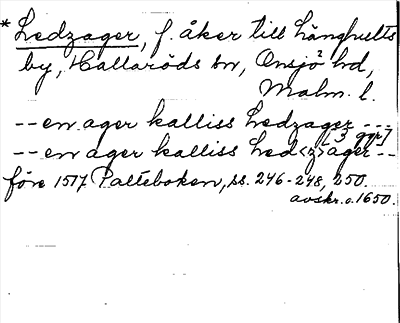 * Ledzager, f. åker till Långhults
by, Hallaröds sn, Onsjö hd,
Malm. l.
-- en ager kalliss Ledzager ---
[3 ggr]
-- en ager kalliss Led<z>ager --
före 1517 Palteboken, ss. 246-248, 250.
avskr. c. 1650.